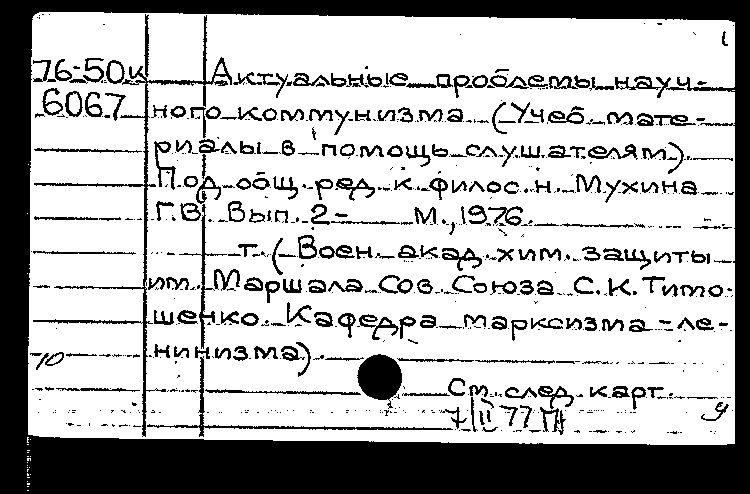 1
76-50к Актуальные проблемы науч-
6067 ного коммунизма (Учеб. мате-
риалы в помощь слушателям).
Под общ. ред. к. филос. н. Мухина
Г.В. Вып. 2- М., 1976.
т. (Воен. акад. хим. защиты
им. Маршала Сов. Союза С.К. Тимо-
шенко. Кафедра марксизма-ле-
10 нинизма).
См. след. карт.
7/II 77